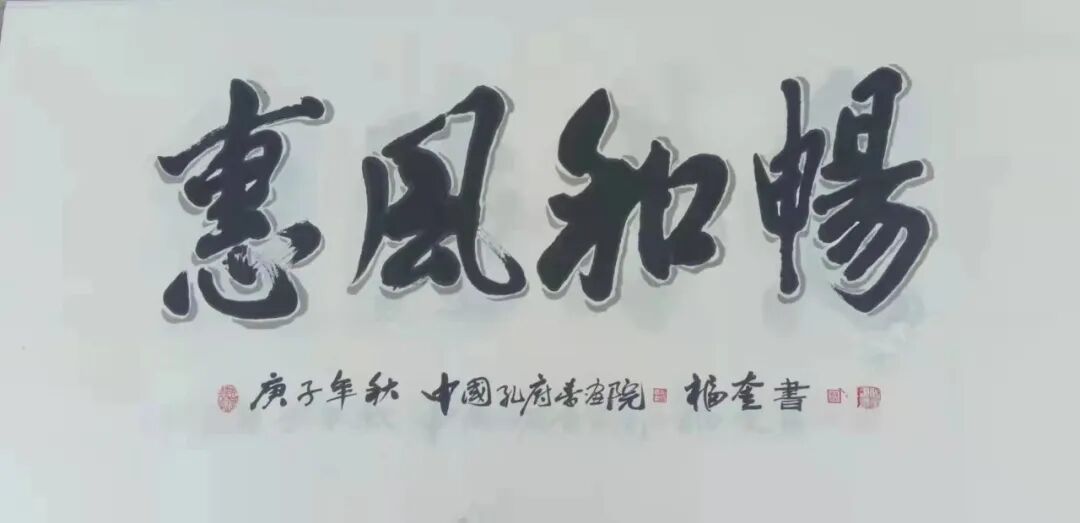 惠風和暢
庚子年秋 中國孔府書画院 福奎書